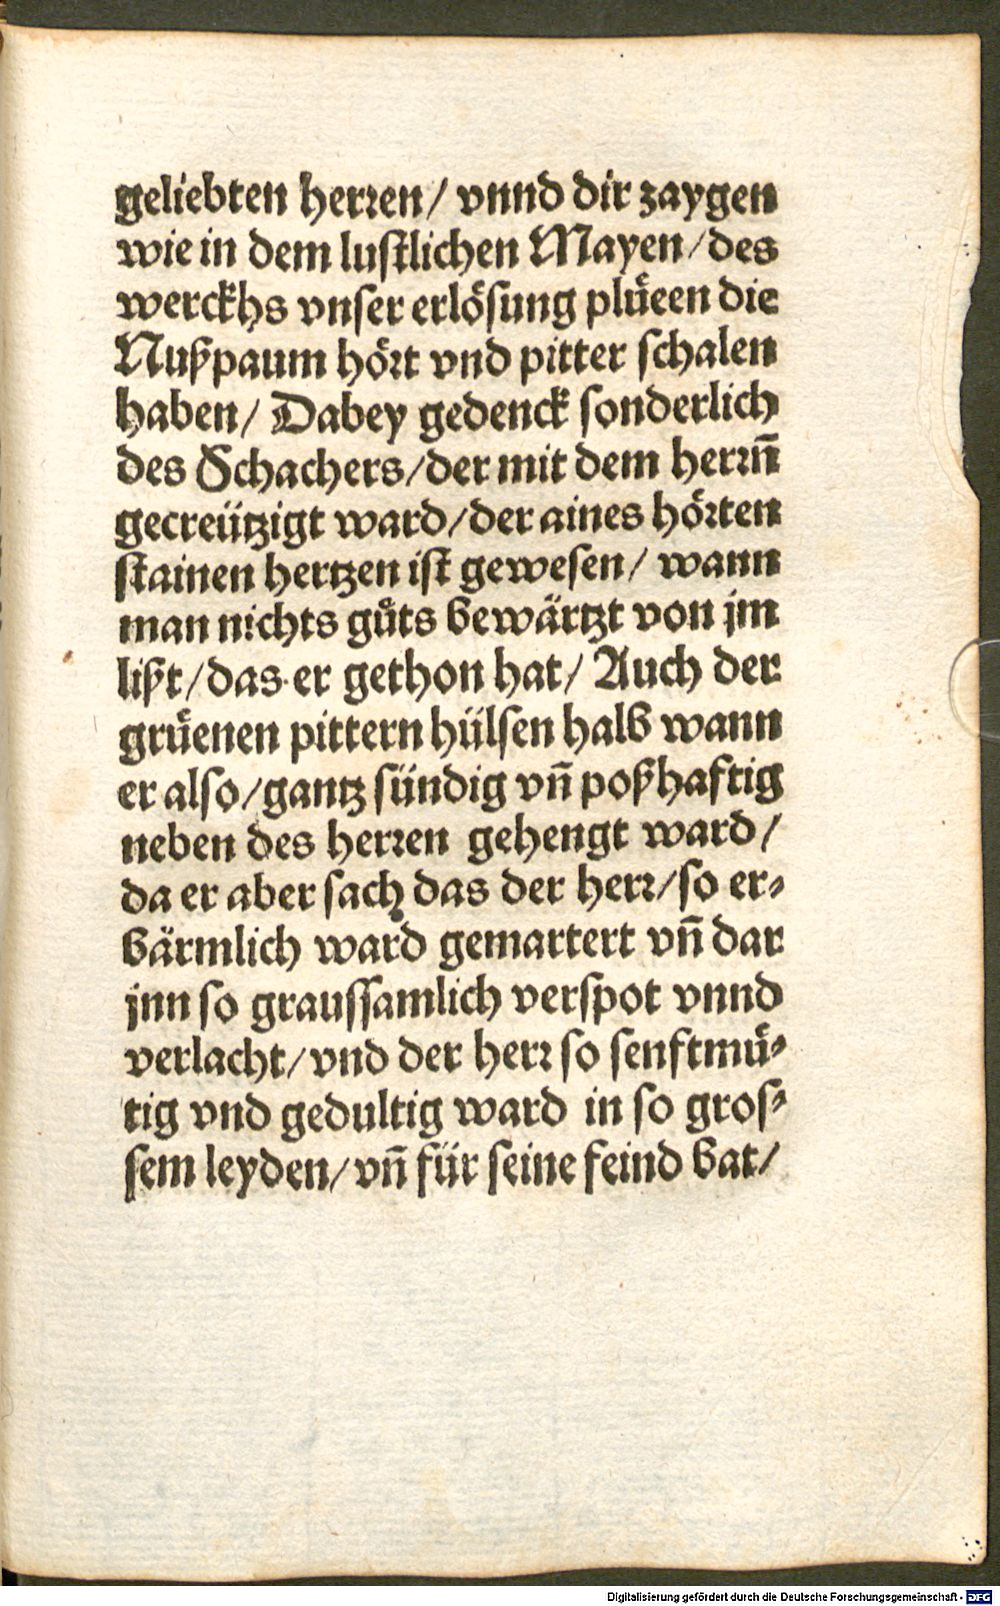 geliebten herren/ vnnd dir zaygen
wie in dem lustlichen Mayen/des
werckhs vnser erlösung plüeen die
Nußpaum hört vnd pitter schalen
haben/ Dabey gedenck sonderlich
des Schachers/der mit dem herrn̄
gecreützigt ward/der aines hörten
stainen hertzen ist gewesen/ wann
man nichts gůts bewärtzt von jm
lißt/das er gethon hat/ Auch der
grüenen pittern hülsen halb wann
er also/gantz sündig vn̄ poßhaftig
neben des herren gehengt ward/
da er aber sach das der herr/so er-
bärmlich ward gemartert vn̄ dar
jnn so graussamlich verspot vnnd
verlacht/vnd der herr so senftmü-
tig vnd gedultig ward in so gros-
sem leyden/vn̄ für seine feind bat/
Digitalisierung gefördert durch die Deutsche Forschungsgemeinschaft - DFG